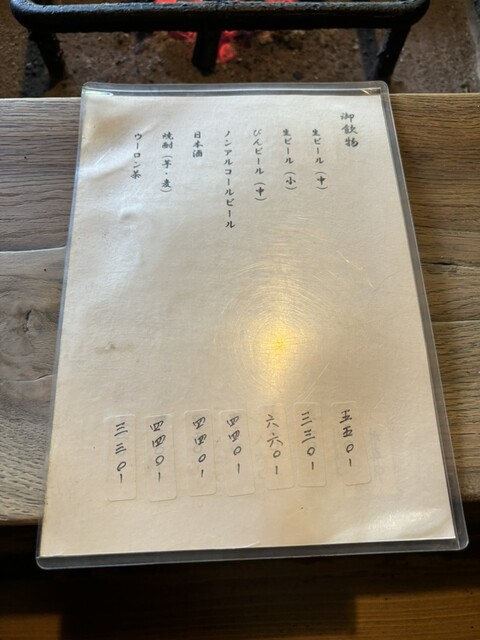 御飲物
生ビール（中） 五五〇-
生ビール（小） 三三〇-
びんビール（中） 六六〇-
ノンアルコールビール 四四〇-
日本酒 四四〇-
焼酎（芋・麦） 四四〇-
ウーロン茶 三三〇-